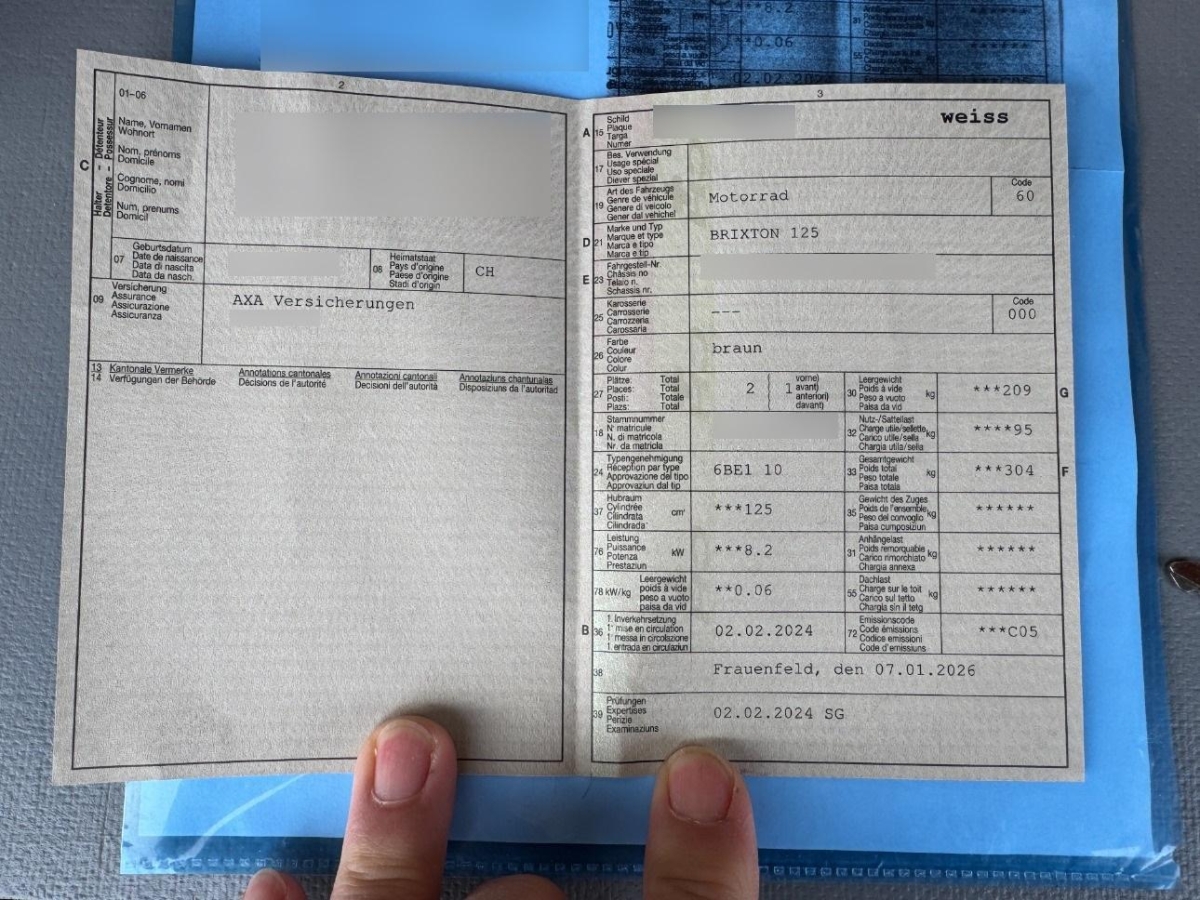 ***8.2
**0.06
02.02.202
2
01-06
C
Halter - Détenteur
Detentore - Possessur
Name, Vornamen
Wohnort
Nom, prénoms
Domicile
Cognome, nomi
Domicilio
Num, prenums
Domicil
07
Geburtsdatum
Date de naissance
Data di nascita
Data da nasch.
08
Heimatstaat
Pays d'origine
Paese d'origine
Stadi d'origin
CH
09
Versicherung
Assurance
Assicurazione
Assicuranza
AXA Versicherungen
13 Kantonale Vermerke Annotations cantonales Annotazioni cantonali Annotaziuns chantunalas
14 Verfügungen der Behörde Décisions de l'autorité Decisioni dell'autorità Disposiziuns da l'autoritad
3
A
15
Schild
Plaque
Targa
Numer
weiss
17
Bes. Verwendung
Usage spécial
Uso speciale
Diever spezial
19
Art des Fahrzeugs
Genre de véhicule
Genere di veicolo
Gener dal vehichel
Motorrad
Code
60
D
21
Marke und Typ
Marque et type
Marca e tipo
Marca e tip
BRIXTON 125
E
23
Fahrgestell-Nr.
Châssis no
Telaio n.
Schassis nr.
25
Karosserie
Carrosserie
Carrozzeria
Carossaria
---
Code
000
26
Farbe
Couleur
Colore
Colur
braun
27
Plätze: Total
Places: Total
Posti: Totale
Plazs: Total
2
1
vorne)
avant)
anteriori)
davant)
30
Leergewicht
Poids à vide
Peso a vuoto
Paisa da vid
kg
***209
G
18
Stammnummer
N° matricule
N. di matricola
Nr. da matricla
32
Nutz-/Sattellast
Charge utile/sellette
Carico utile/sella
Chargia utila/sella
kg
****95
24
Typengenehmigung
Réception par type
Approvazione del tipo
Approvaziun dal tip
6BE1 10
33
Gesamtgewicht
Poids total
Peso totale
Paisa totala
kg
***304
F
37
Hubraum
Cylindrée
Cilindrata
Cilindrada
cm³
***125
35
Gewicht des Zuges
Poids de l'ensemble
Peso del convoglio
Paisa cumposiziun
kg
******
76
Leistung
Puissance
Potenza
Prestaziun
kW
***8.2
31
Anhängelast
Poids remorquable
Carico rimorchiato
Chargia annexa
kg
******
78 kW/kg
Leergewicht
poids à vide
peso a vuoto
paisa da vid
**0.06
55
Dachlast
Charge sur le toit
Carico sul tetto
Chargia sin il tetg
kg
******
B
36
1. Inverkehrsetzung
1re mise en circulation
1a messa in circolazione
1. entrada en circulaziun
02.02.2024
72
Emissionscode
Code émissions
Codice emissioni
Code d'emissiuns
***C05
38
Frauenfeld, den 07.01.2026
39
Prüfungen
Expertises
Perizie
Examinaziuns
02.02.2024 SG